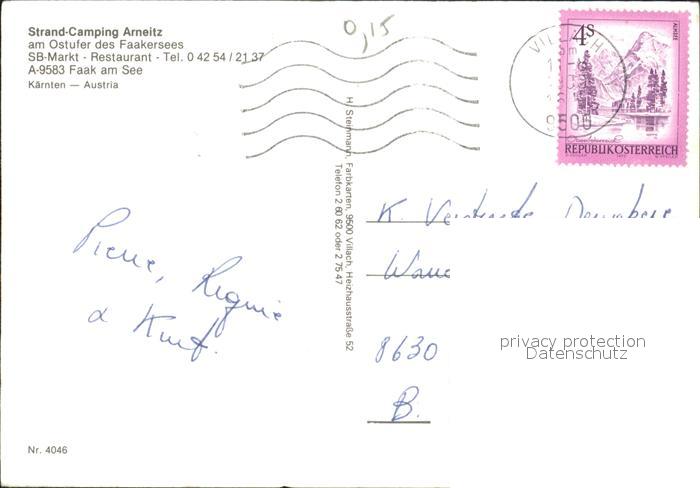 Strand-Camping Arneitz
am Ostufer des Faakersees
SB-Markt - Restaurant - Tel. 0 42 54 / 21 37
A-9583 Faak am See
Kärnten — Austria
0,15
VILLACH
9500
4S
ALMSEE
REPUBLIK ÖSTERREICH
H. Steinmann, Farbkarten, 9500 Villach, Heizhausstraße 52
Telefon 2 60 62 oder 2 75 47
K.
8630
B.
Pierre,
&
privacy protection
Datenschutz
Nr. 4046